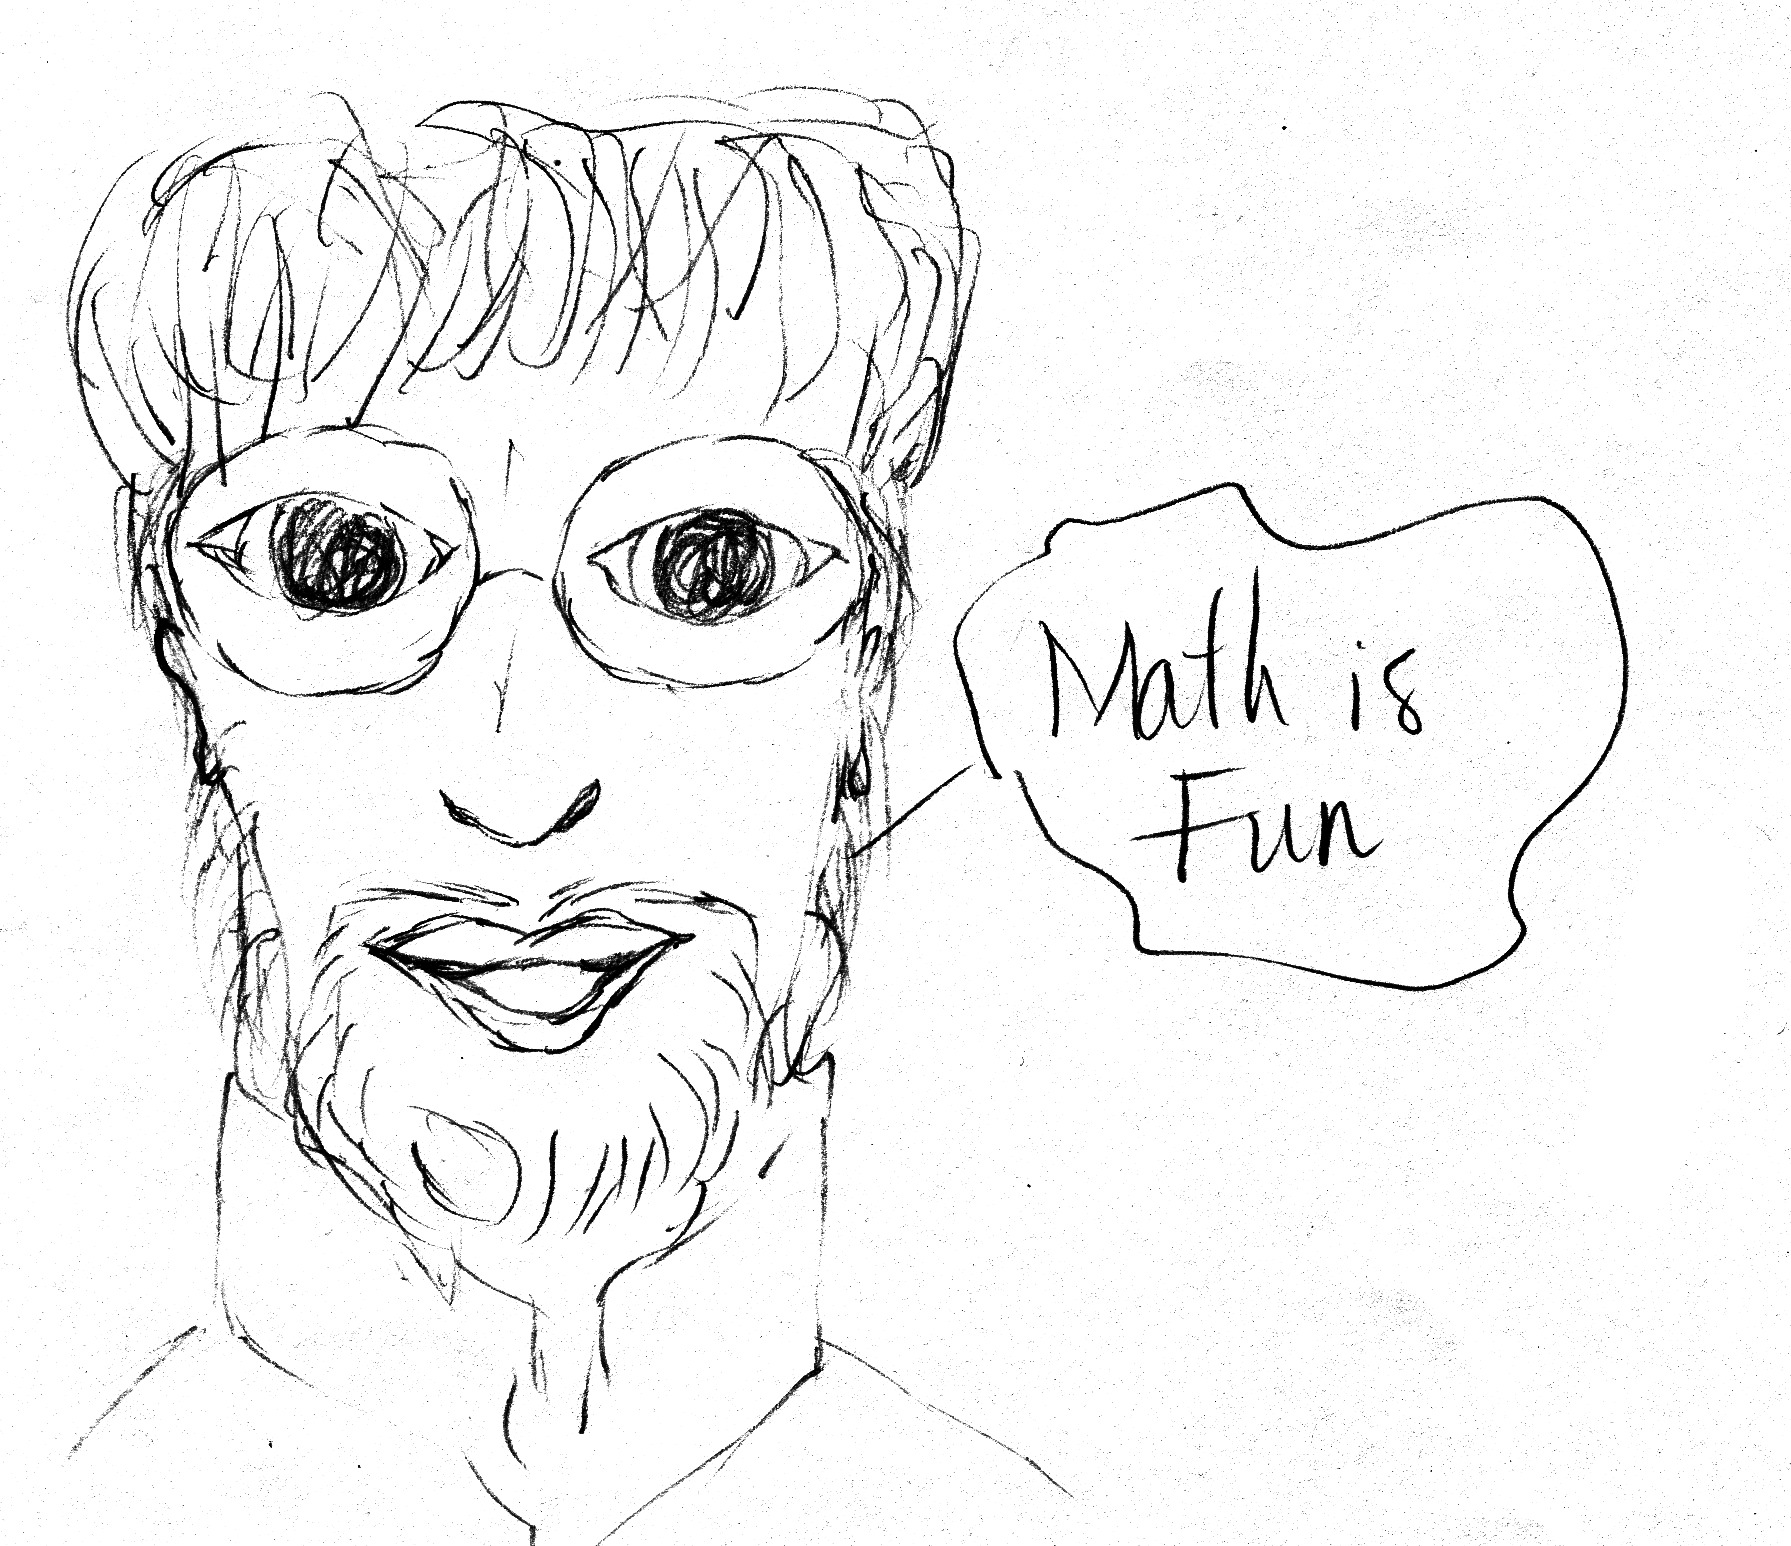 Math is
Fun